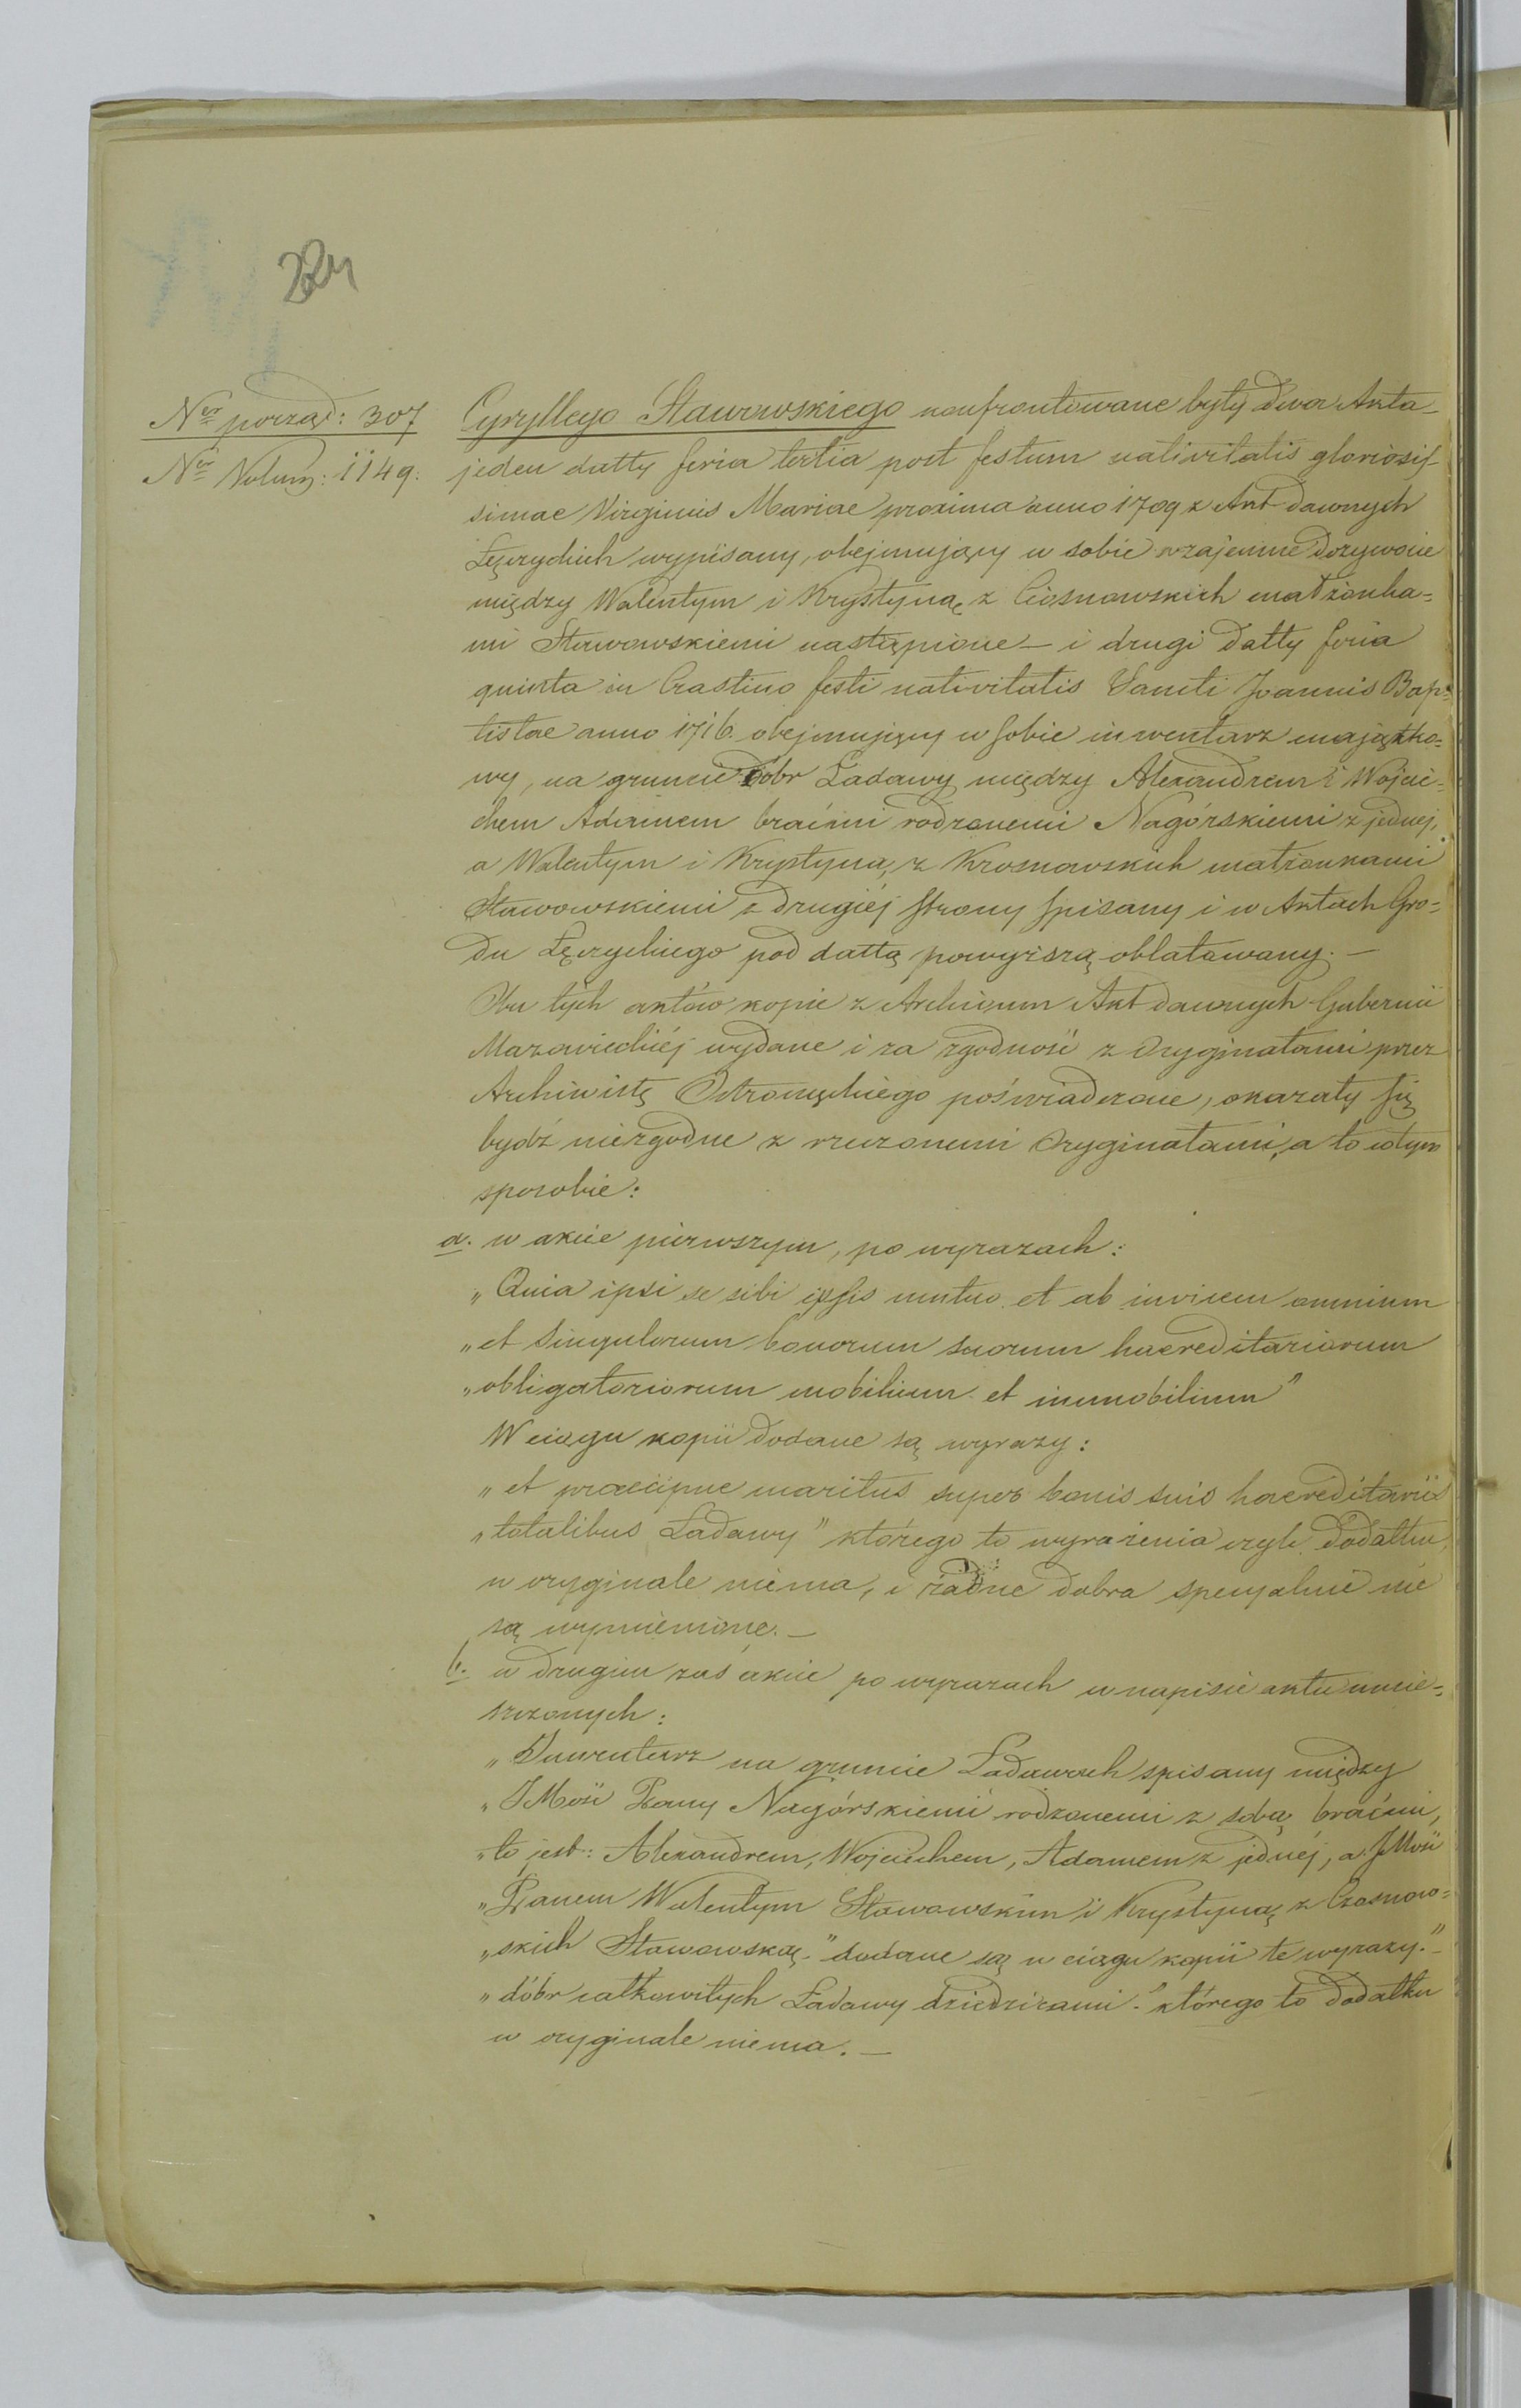 324
Ner porząd: 307
Ner Volum: 1149.
Cyryllego Stawowskiego konfrontowane były dwa Akta
jeden datty feria tertia post festum nativitatis gloriosis-
simae Virginis Mariae proxima anno 1709 z Akt dawnych
Łęczyckich wypisany, obejmujący w sobie wzajemne dożywocie
między Walentym i Krystyną z Ciosnowskich małżonka=
mi Stawowskiemi nastąpione – i drugi datty feria
quinta in Crastino festi nativitatis Sancti Joannis Bap=
tistae anno 1716. obejmujący w sobie inwentarz majątko=
wy, na gruncie dóbr Ładawy między Alexandrem i Wojcie=
chem Adamem braćmi rodzonemi Nagórskiemi z jednej,
a Walentym i Krystyną z Krosnowskich małżonkami
Stawowskiemi z drugiéj strony spisany i w Aktach Gro=
du Łęczyckiego pod dattą powyższą oblatowany. –
Obu tych aktów kopie z Archiwum Akt dawnych Gubernii
Mazowieckiéj wydane i za zgodność z Oryginałami przez
Archiwistę Ostromęckiego poświadczone, okazały się
bydź niezgodne z rzeczonemi Oryginałami, a to w tym
sposobie:
a. w akcie pierwszym, po wyrazach:
„Quia ipsi se sibi ipsis mutuo et ab invicem omnium
„et Singulorum bonorum suorum haereditariorum
„obligatoriorum mobilium et immobilium"
W ciągu kopii dodane są wyrazy:
„et praecipue maritus super bonis suis haereditariis
„totalibus Ładawy" którego to wyrażenia czyli dodatku,
w oryginale niema, i żadne dobra specyalnie nie
są wymienione. –
b. w drugim zaś akcie po wyrazach w napisie aktu umie=
szczonych:
„Inwentarz na gruncie Ładawach spisany między
„JMość Pany Nagórskiemi rodzonemi z sobą braćmi,
„to jest: Alexandrem, Wojciechem, Adamem z jednéj, a JMość
„Panem Walentym Stawowskim i Krystyną z Czosnow=
„skich Stawowską." dodane są w ciągu kopii te wyrazy."–
„dóbr całkowitych Ładawy dziedzicami." którego to dodatku
w oryginale niema. –